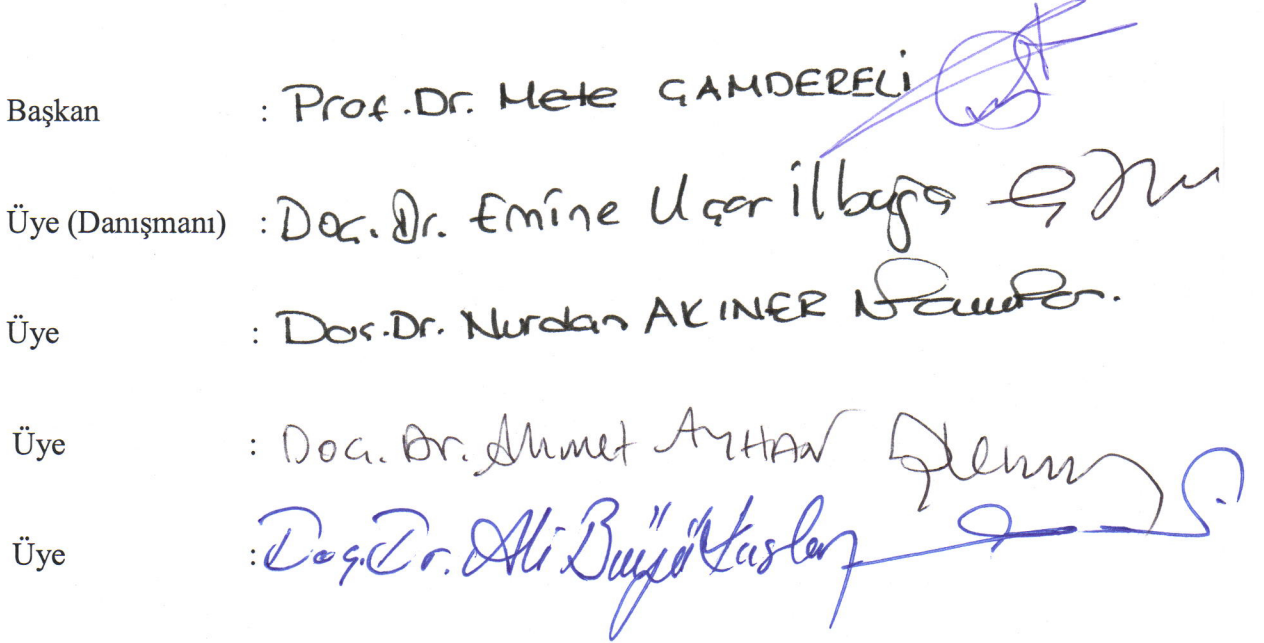 Başkan : Prof. Dr. Mete ÇAMDERELİ
Üye (Danışmanı) : Doç. Dr. Emine Uçar İlbuğa
Üye : Doç. Dr. Nurdan AKINER
Üye : Doç. Dr. Ahmet AYHAN
Üye : Doç. Dr. Ali Büyükaslan